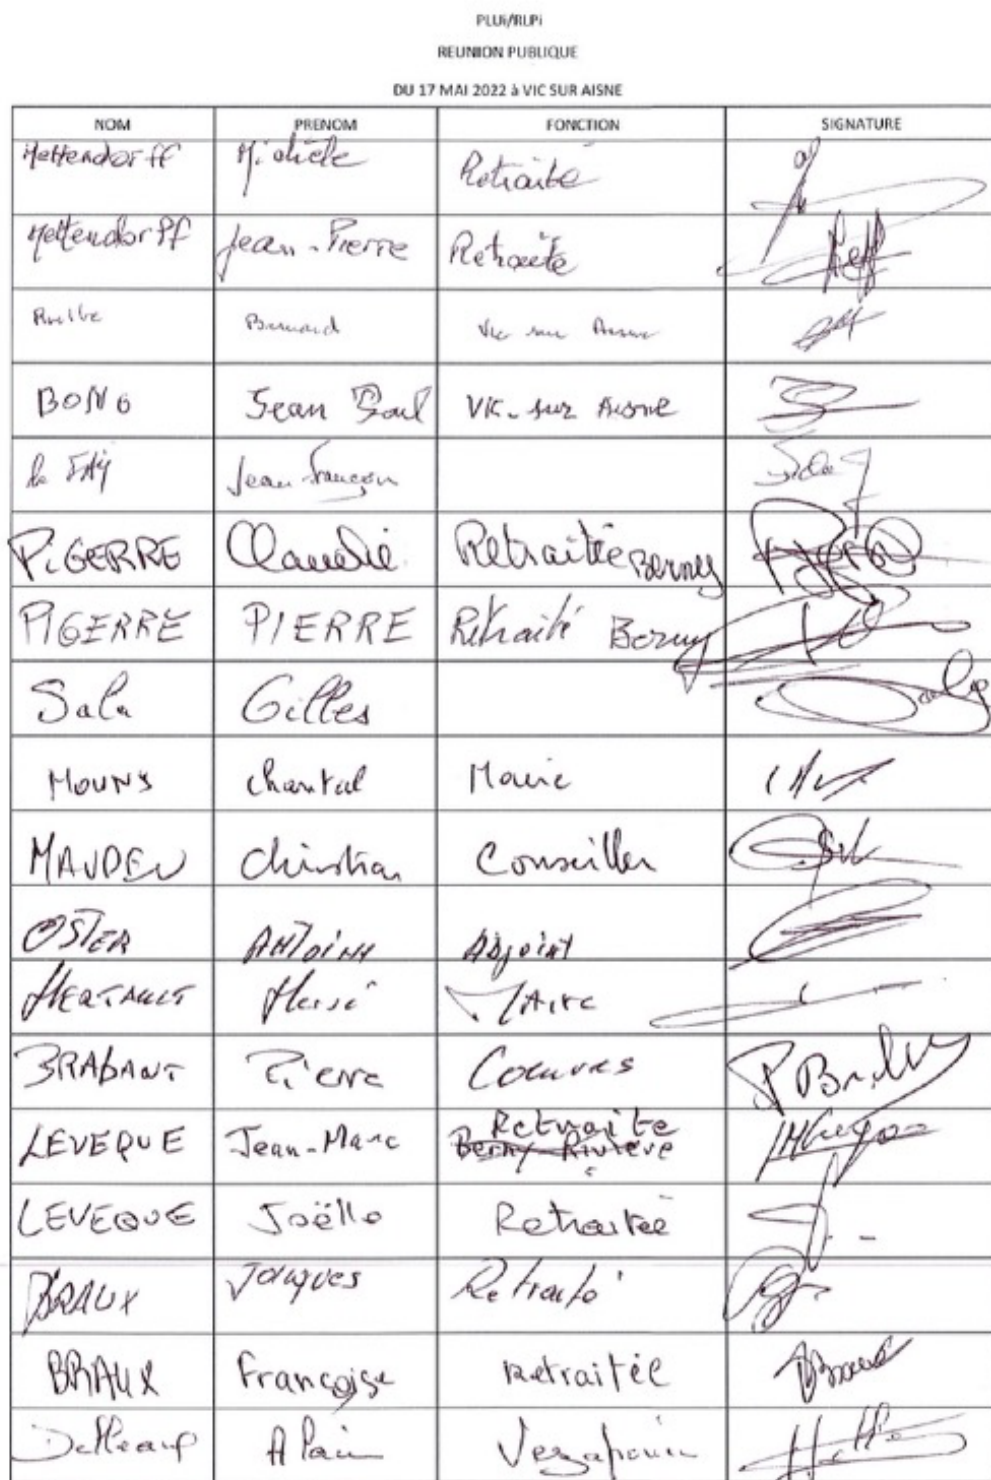 PLUi/RLPi
REUNION PUBLIQUE
DU 17 MAI 2022 à VIC SUR AISNE
NOM PRENOM FONCTION SIGNATURE
Mettendorff Michèle Retraité
Mettendorff Jean-Pierre Retraité
Bernard Vic sur Aisne
BONO Jean Paul VIC-sur Aisne
le FAY Jean-François
PiGERRE Claudie Retraitée Berny
PIGERRE PIERRE Retraité Berny
Sala Gilles
MOUNY Chantal Maire
Christian Conseiller
OSTER ANTOINE ADJOINT
HERTAULT Hervé MAire
BRABANT Pierre Coeuvres
Retraite
LEVEQUE Jean-Marc Berny Rivière
LEVEQUE Joëlle Retraitée
BRAUX Jacques Retraité
BRAUX Françoise Retraitée
Alain